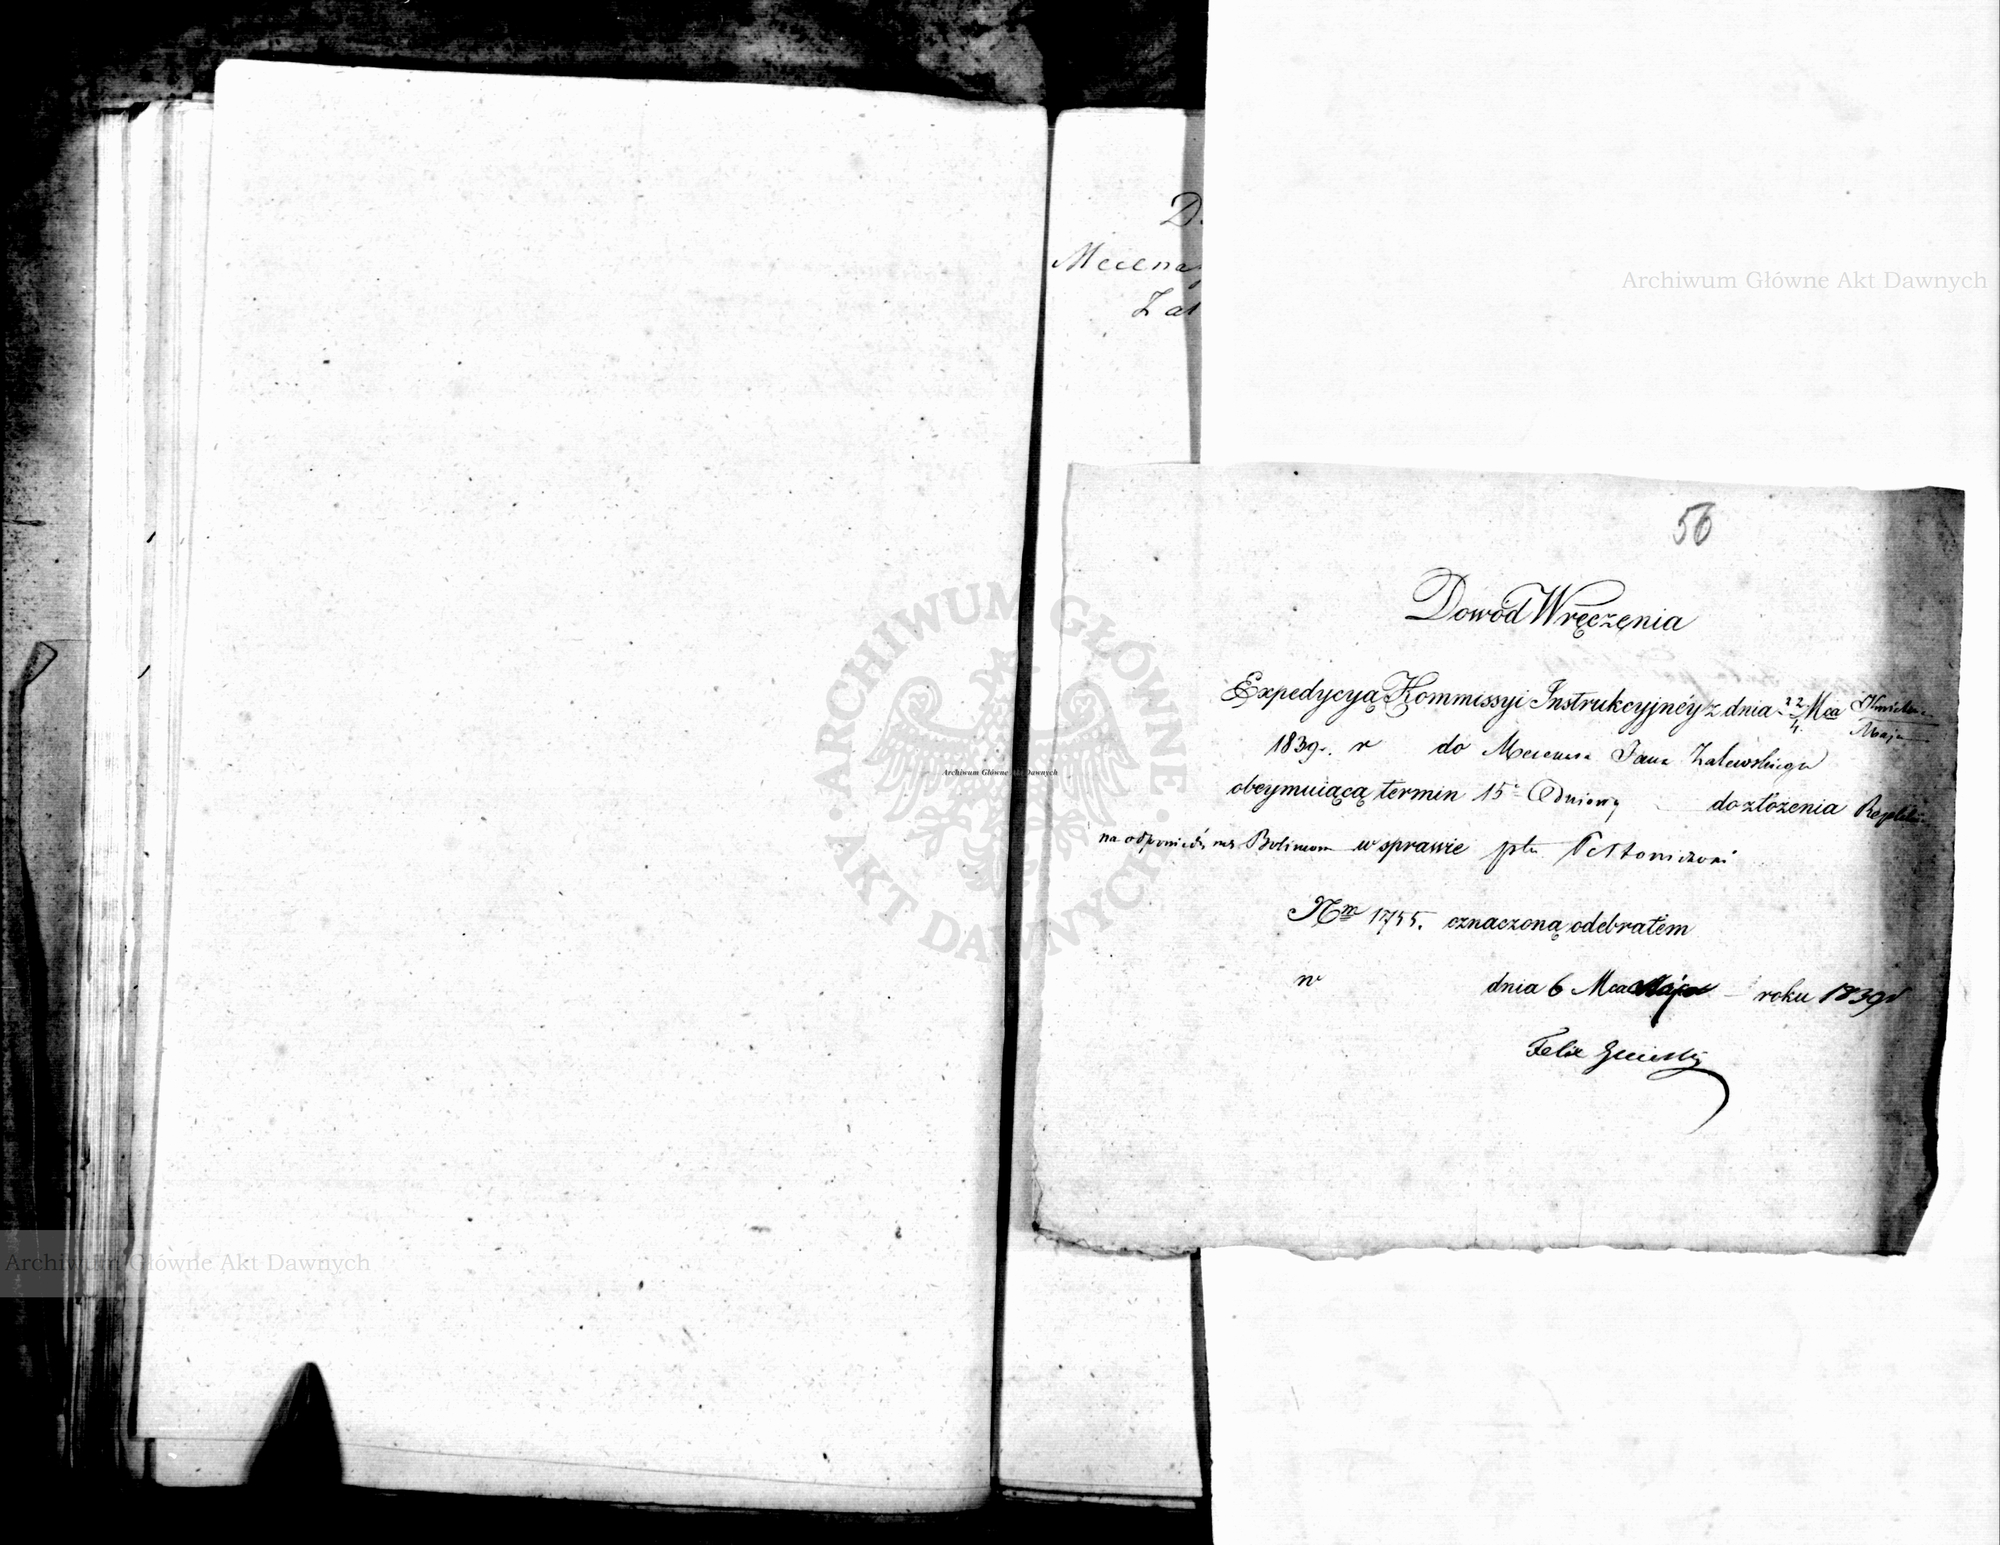 D
Mecena
Zal
56
Dowód Wręczęnia
Expedycyą Kommissyi Instrukcyjnéy z dnia 22/4 Mca Kwietnia/Maja
1839. r do Mecenasa Jana Zalewskiego
obeymuiącą termin 15 Dniowy do złożenia Repliki
na odpowiedź w sprawie
Nm 1755. oznaczoną odebrałem
w dnia 6 Mca Maja roku 1839
Felix
Archiwum Główne Akt Dawnych
ARCHIWUM GŁÓWNE AKT DAWNYCH
Archiwum Główne Akt Dawnych
Archiwum Główne Akt Dawnych